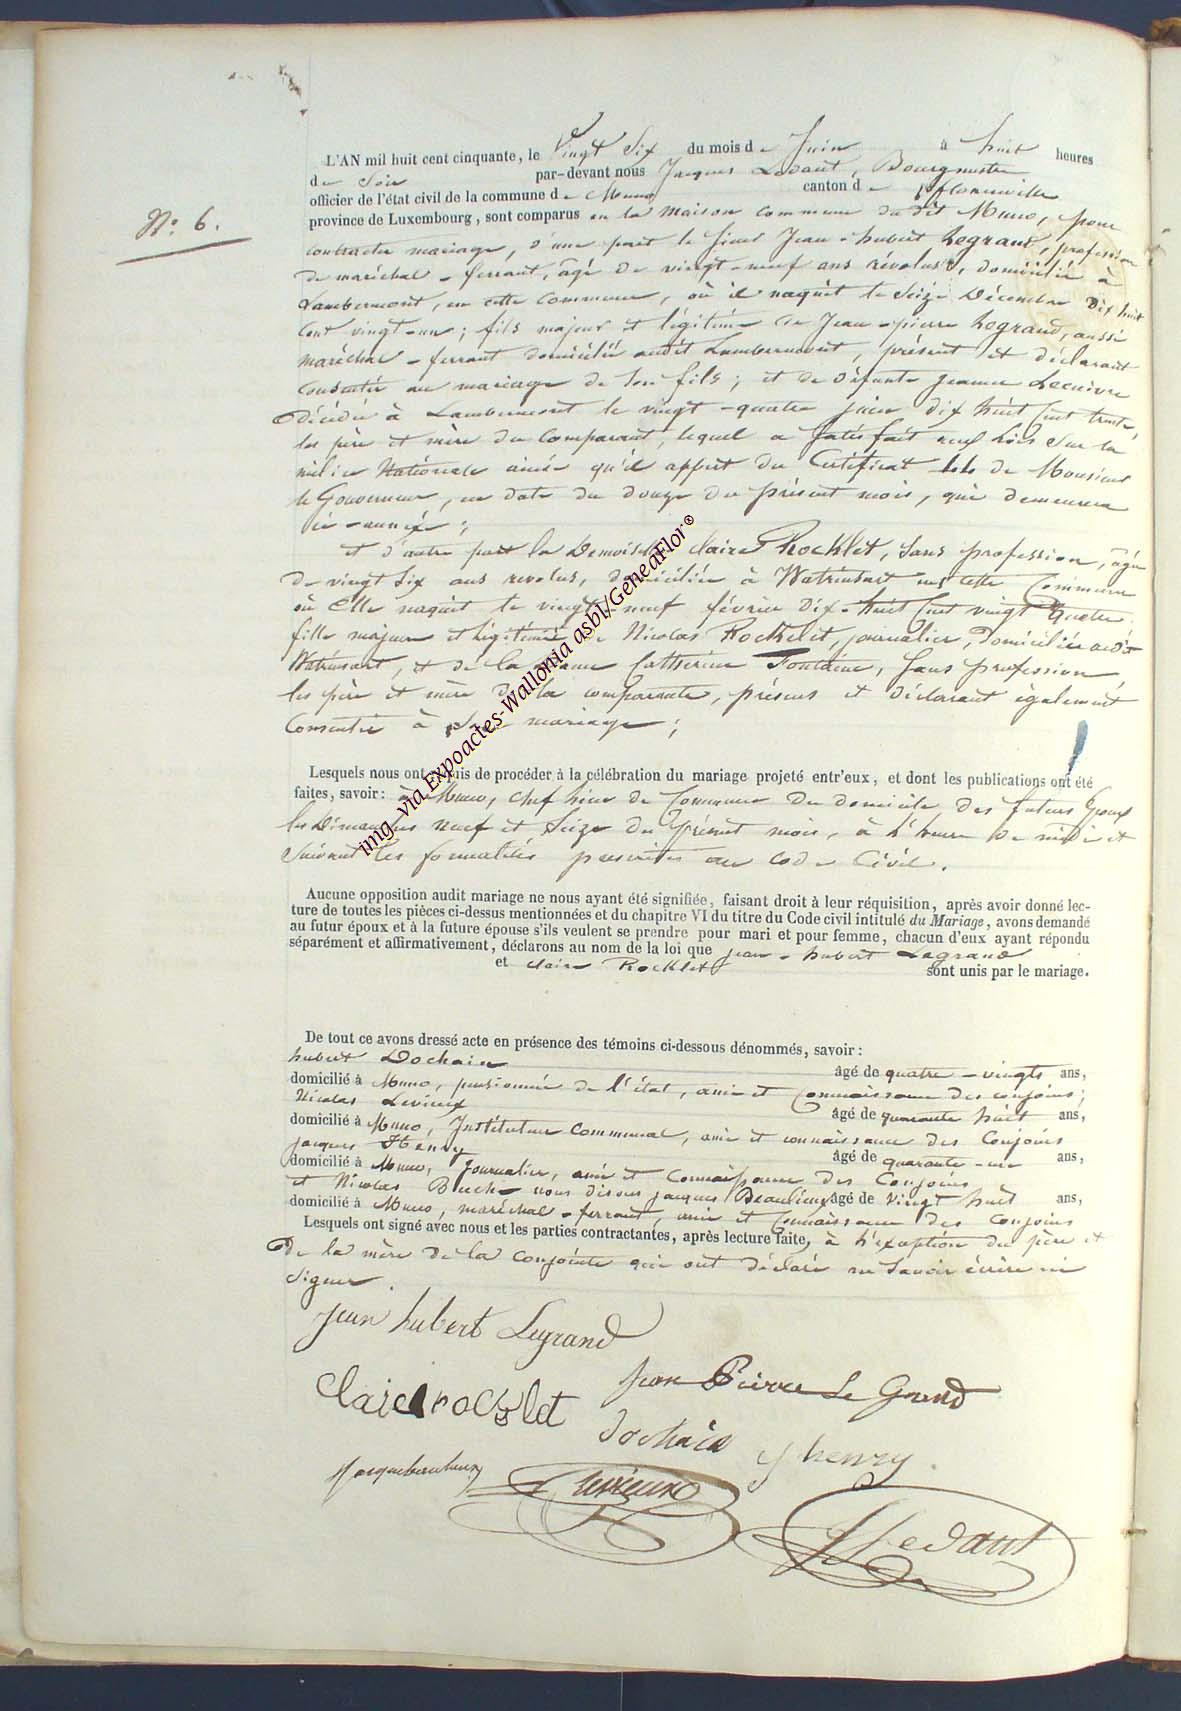 N.o 6.
L'AN mil huit cent cinquante, le Vingt Six du mois de Juin à huit heures
du Soir par-devant nous Jacques Ledant, Bourgmestre
officier de l'état civil de la commune de Muno canton de florenville
province de Luxembourg, sont comparus en la maison commune du dit Muno, pour
contracter mariage, d'une part le sieur Jean-hubert Legrand, profession
de maréchal-ferrant, âgé de vingt-neuf ans révolus, domicilié à
Lambermont, en cette commune, où il naquit le Seize Décembre Dix huit
cent vingt-un; fils majeur et légitime de Jean-pierre Legrand, aussi
maréchal-ferrant domicilié audit Lambermont, présent et déclarant
consentir au mariage de son fils; et de défunte jeanne Lecuivre
décédée à Lambermont le vingt-quatre juin dix huit cent trente,
les père et mère du comparant, lequel a satisfait aux lois sur la
milice Nationale ainsi qu'il appert du Certificat de Monsieur
le Gouverneur, en date du douze du présent mois, qui demeurera
ci-annexé;
et d'autre part la Demoiselle claire Rocklet, sans profession, âgée
de vingt six ans revolus, domiciliée à Watrinsart en cette Commune
où Elle naquit le vingt-neuf février dix-huit cent vingt quatre
fille majeure et légitime de Nicolas Rocklet, journalier, domicilié audit
Watrinsart, et de la dame Catherine Fontaine, sans profession,
les père et mère de la comparante, présens et déclarant également
consentir à son mariage;
Lesquels nous ont requis de procéder à la célébration du mariage projeté entr'eux, et dont les publications ont été
faites, savoir: à Muno, chef lieu de Commune du domicile des futurs Epoux
les Dimanches neuf et Seize du présent mois, à l'heure de midi et
suivant les formalités prescrites au code Civil.
Aucune opposition audit mariage ne nous ayant été signifiée, faisant droit à leur réquisition, après avoir donné lec-
ture de toutes les pièces ci-dessus mentionnées et du chapitre VI du titre du Code civil intitulé du Mariage, avons demandé
au futur époux et à la future épouse s'ils veulent se prendre pour mari et pour femme, chacun d'eux ayant répondu
séparément et affirmativement, déclarons au nom de la loi que jean-hubert Legrand
et claire Rocklet sont unis par le mariage.
De tout ce avons dressé acte en présence des témoins ci-dessous dénommés, savoir:
hubert Dochain âgé de quatre-vingts ans,
domicilié à Muno, pensionné de l'état, ami et connaissance des conjoins;
Nicolas Levieux âgé de quarante huit ans,
domicilié à Muno, Instituteur communal, ami et connaissance des Conjoins
jacques Henry âgé de quarante-un ans,
domicilié à Muno, journalier, ami et connaissance des Conjoins
et Nicolas nous disons jacques Beaulieux âgé de vingt huit ans,
domicilié à Muno, maréchal-ferrant, ami et connaissance des conjoins
Lesquels ont signé avec nous et les parties contractantes, après lecture faite, à l'exception du père et
de la mère de la conjointe qui ont déclaré ne savoir écrire ni
signer.
jean hubert Legrand
Jean Pierre Le Grand
Claire rocklet
dochain
J henry
Jacquebeaulieux
Levieux
J Ledant
img via Expoactes-Wallonia asbl/GeneaFlor®